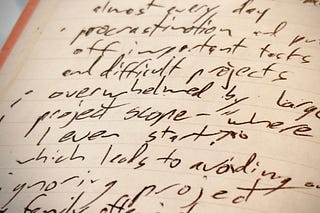 almost every day
procrastination and
off important tasks
and difficult projects
overwhelmed by large
project scope - where
I even start?
which leads to avoiding
ignoring project